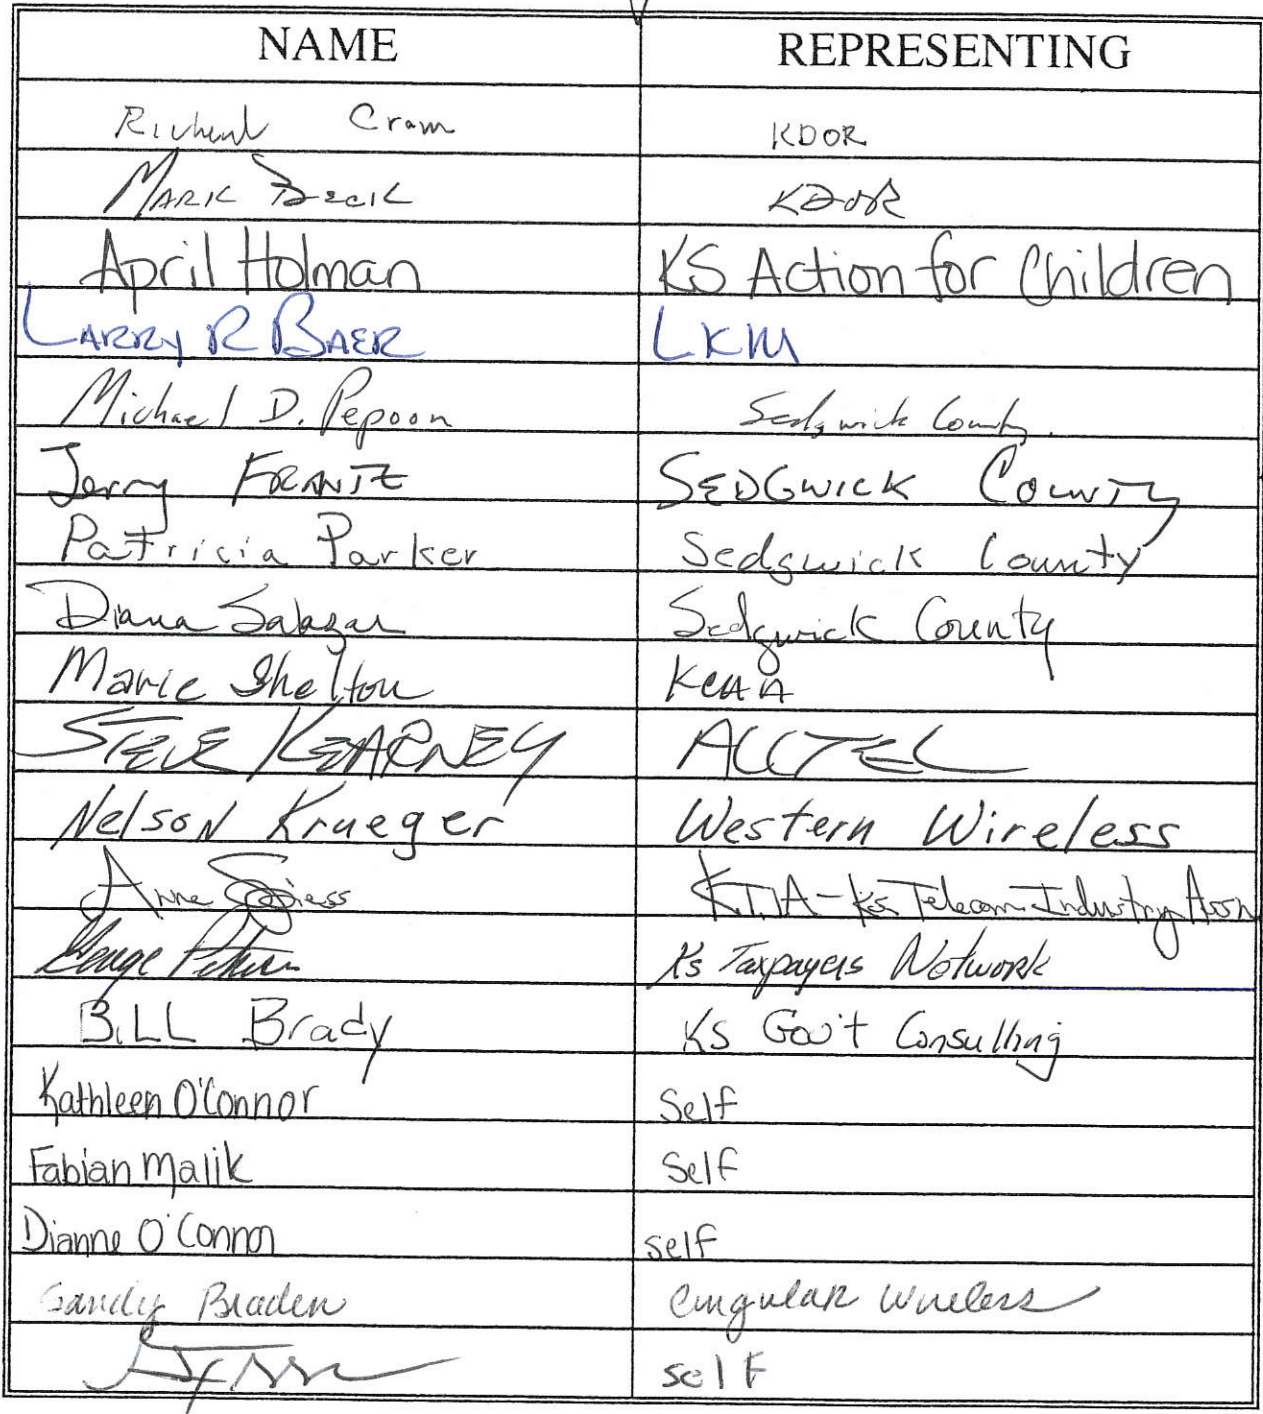 NAME REPRESENTING
Richard Cram KDOR
MARK BECK KDOR
April Holman KS Action for Children
LARRY R BAER LKM
Michael D. Pepoon Sedgwick County.
Jerry FRANTZ SEDGWICK COUNTY
Patricia Parker Sedgwick County
Diana Salazar Sedgwick County
Marie Shelton KCAA
STEVE KEARNEY ALLTEL
Nelson Krueger Western Wireless
Anne Spiess KTIA-Ks Telecom Industry Assn
George Ks Taxpayers Network
BILL Brady KS Gov't Consulting
Kathleen O'Connor Self
Fabian Malik Self
Dianne O'Connor self
Sandy Braden Cingular Wireless
self